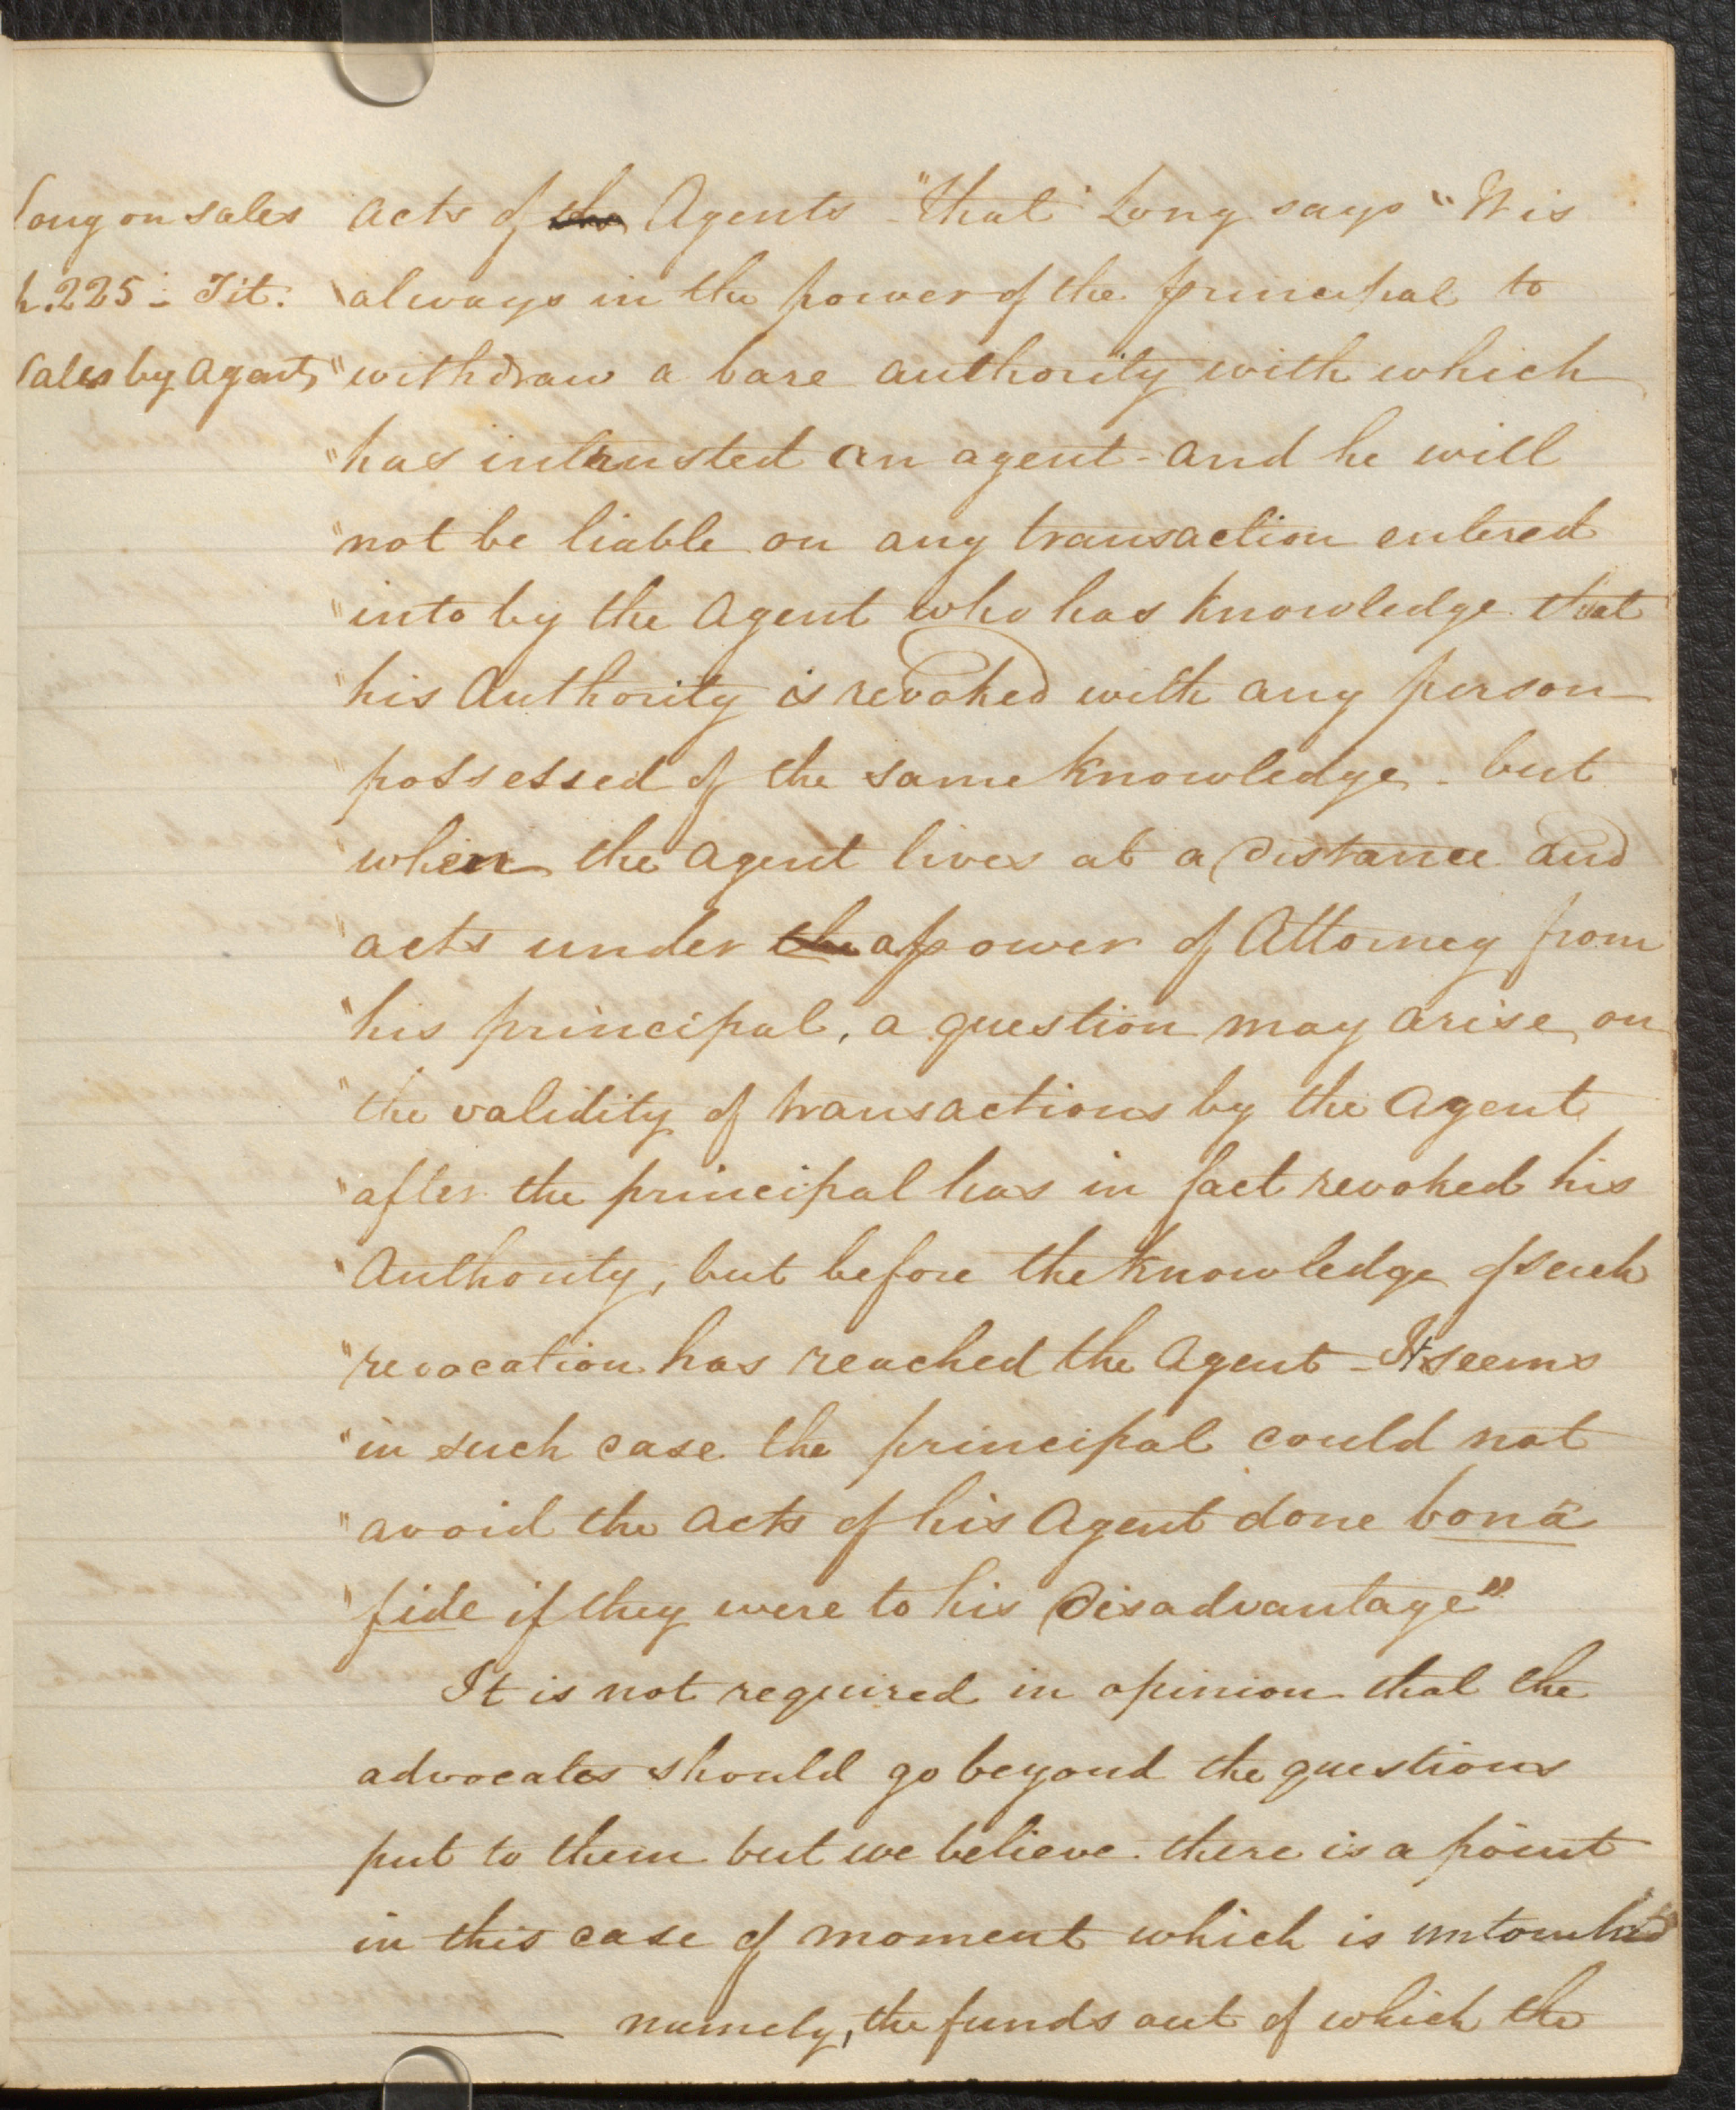 Long on sales
p. 225 - Tit.
Sales by Agents
acts of the Agents - "that" Long says "It is
"always in the power of the principal to
"withdraw a bare authority with which
"has intrusted an agent - and he will
"not be liable on any transaction entered
"into by the Agent who has knowledge that
"his Authority is revoked with any person
"possessed of the same knowledge - but
"when the Agent lives at a distance and
"acts under the a power of Attorney from
"his principal, a question may arise on
"the validity of transactions by the Agent
"after the principal has in fact revoked his
"Authority, but before the knowledge of such
"revocation has reached the Agent - It seems
"in such case the principal could not
"avoid the acts of his Agent done bonâ
"fide if they were to his disadvantage"
It is not required in opinion that the
advocates should go beyond the questions
put to them but we believe there is a point
in this case of moment which is untouched
namely, the funds out of which the